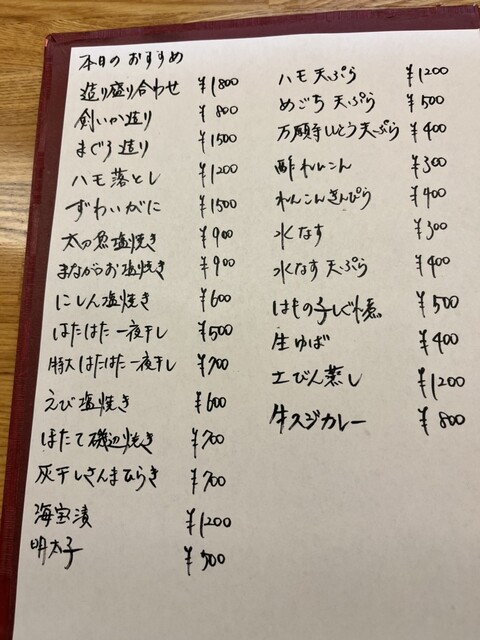 本日のおすすめ
造り盛り合わせ ¥1800
剣いか造り ¥800
まぐろ造り ¥1500
ハモ落とし ¥1200
ずわいがに ¥1500
太刀魚塩焼き ¥900
まながつお塩焼き ¥900
にしん塩焼き ¥600
はたはた一夜干し ¥500
特大はたはた一夜干し ¥700
えび塩焼き ¥600
ほたて磯辺焼き ¥700
灰干しさんまひらき ¥700
海宝漬 ¥1200
明太子 ¥500
ハモ天ぷら ¥1200
めごち天ぷら ¥500
万願寺とう天ぷら ¥400
酢れんこん ¥300
れんこんきんぴら ¥400
水なす ¥300
水なす天ぷら ¥400
はもの子しぐれ煮 ¥500
生ゆば ¥400
土びん蒸し ¥1200
牛スジカレー ¥800